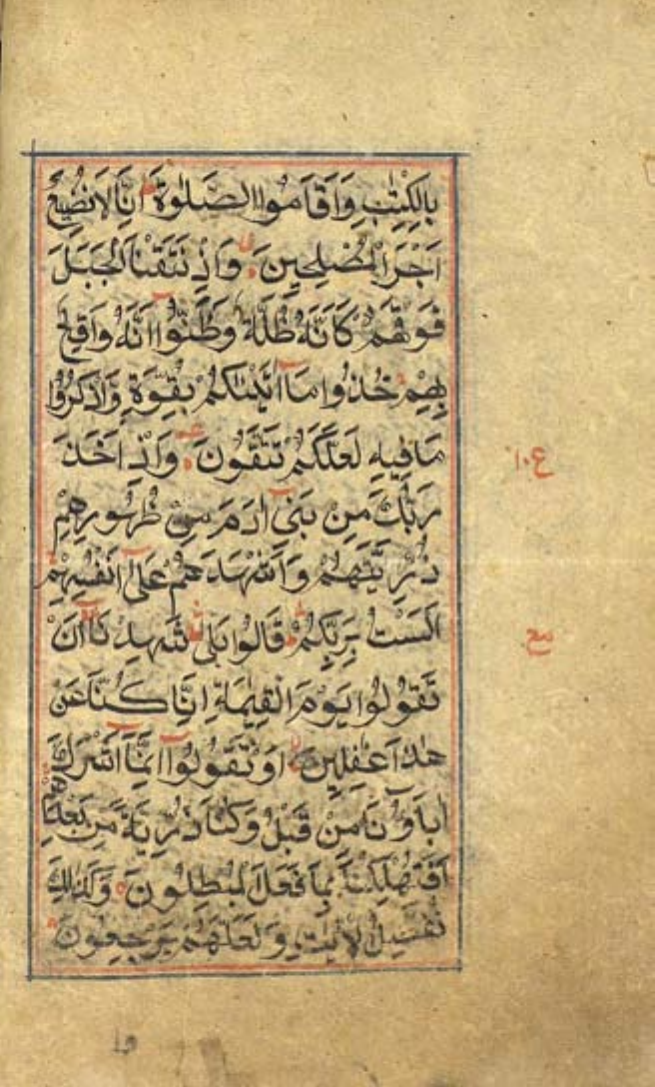 بِالْكِتٰبِ وَاَقَامُوا الصَّلٰوةَ اِنَّا لَا نُضِيْعُ
اَجْرَ الْمُصْلِحِيْنَ وَاِذْ نَتَقْنَا الْجَبَلَ
فَوْقَهُمْ كَاَنَّهٗ ظُلَّةٌ وَظَنُّوْا اَنَّهٗ وَاقِعٌ
بِهِمْ خُذُوْا مَا اٰتَيْنٰكُمْ بِقُوَّةٍ وَّاذْكُرُوْا
مَا فِيْهِ لَعَلَّكُمْ تَتَّقُوْنَ وَاِذْ اَخَذَ
رَبُّكَ مِنْ بَنِيْ اٰدَمَ مِنْ ظُهُوْرِهِمْ
ذُرِّيَّتَهُمْ وَاَشْهَدَهُمْ عَلٰى اَنْفُسِهِمْ
اَلَسْتُ بِرَبِّكُمْ قَالُوْا بَلٰى شَهِدْنَا اَنْ
تَقُوْلُوْا يَوْمَ الْقِيٰمَةِ اِنَّا كُنَّا عَنْ
هٰذَا غٰفِلِيْنَ اَوْ تَقُوْلُوْا اِنَّمَا اَشْرَكَ
اٰبَاؤُنَا مِنْ قَبْلُ وَكُنَّا ذُرِّيَّةً مِّنْ بَعْدِهِمْ
اَفَتُهْلِكُنَا بِمَا فَعَلَ الْمُبْطِلُوْنَ وَكَذٰلِكَ
نُفَصِّلُ الْاٰيٰتِ وَلَعَلَّهُمْ يَرْجِعُوْنَ
ع١٠
مع